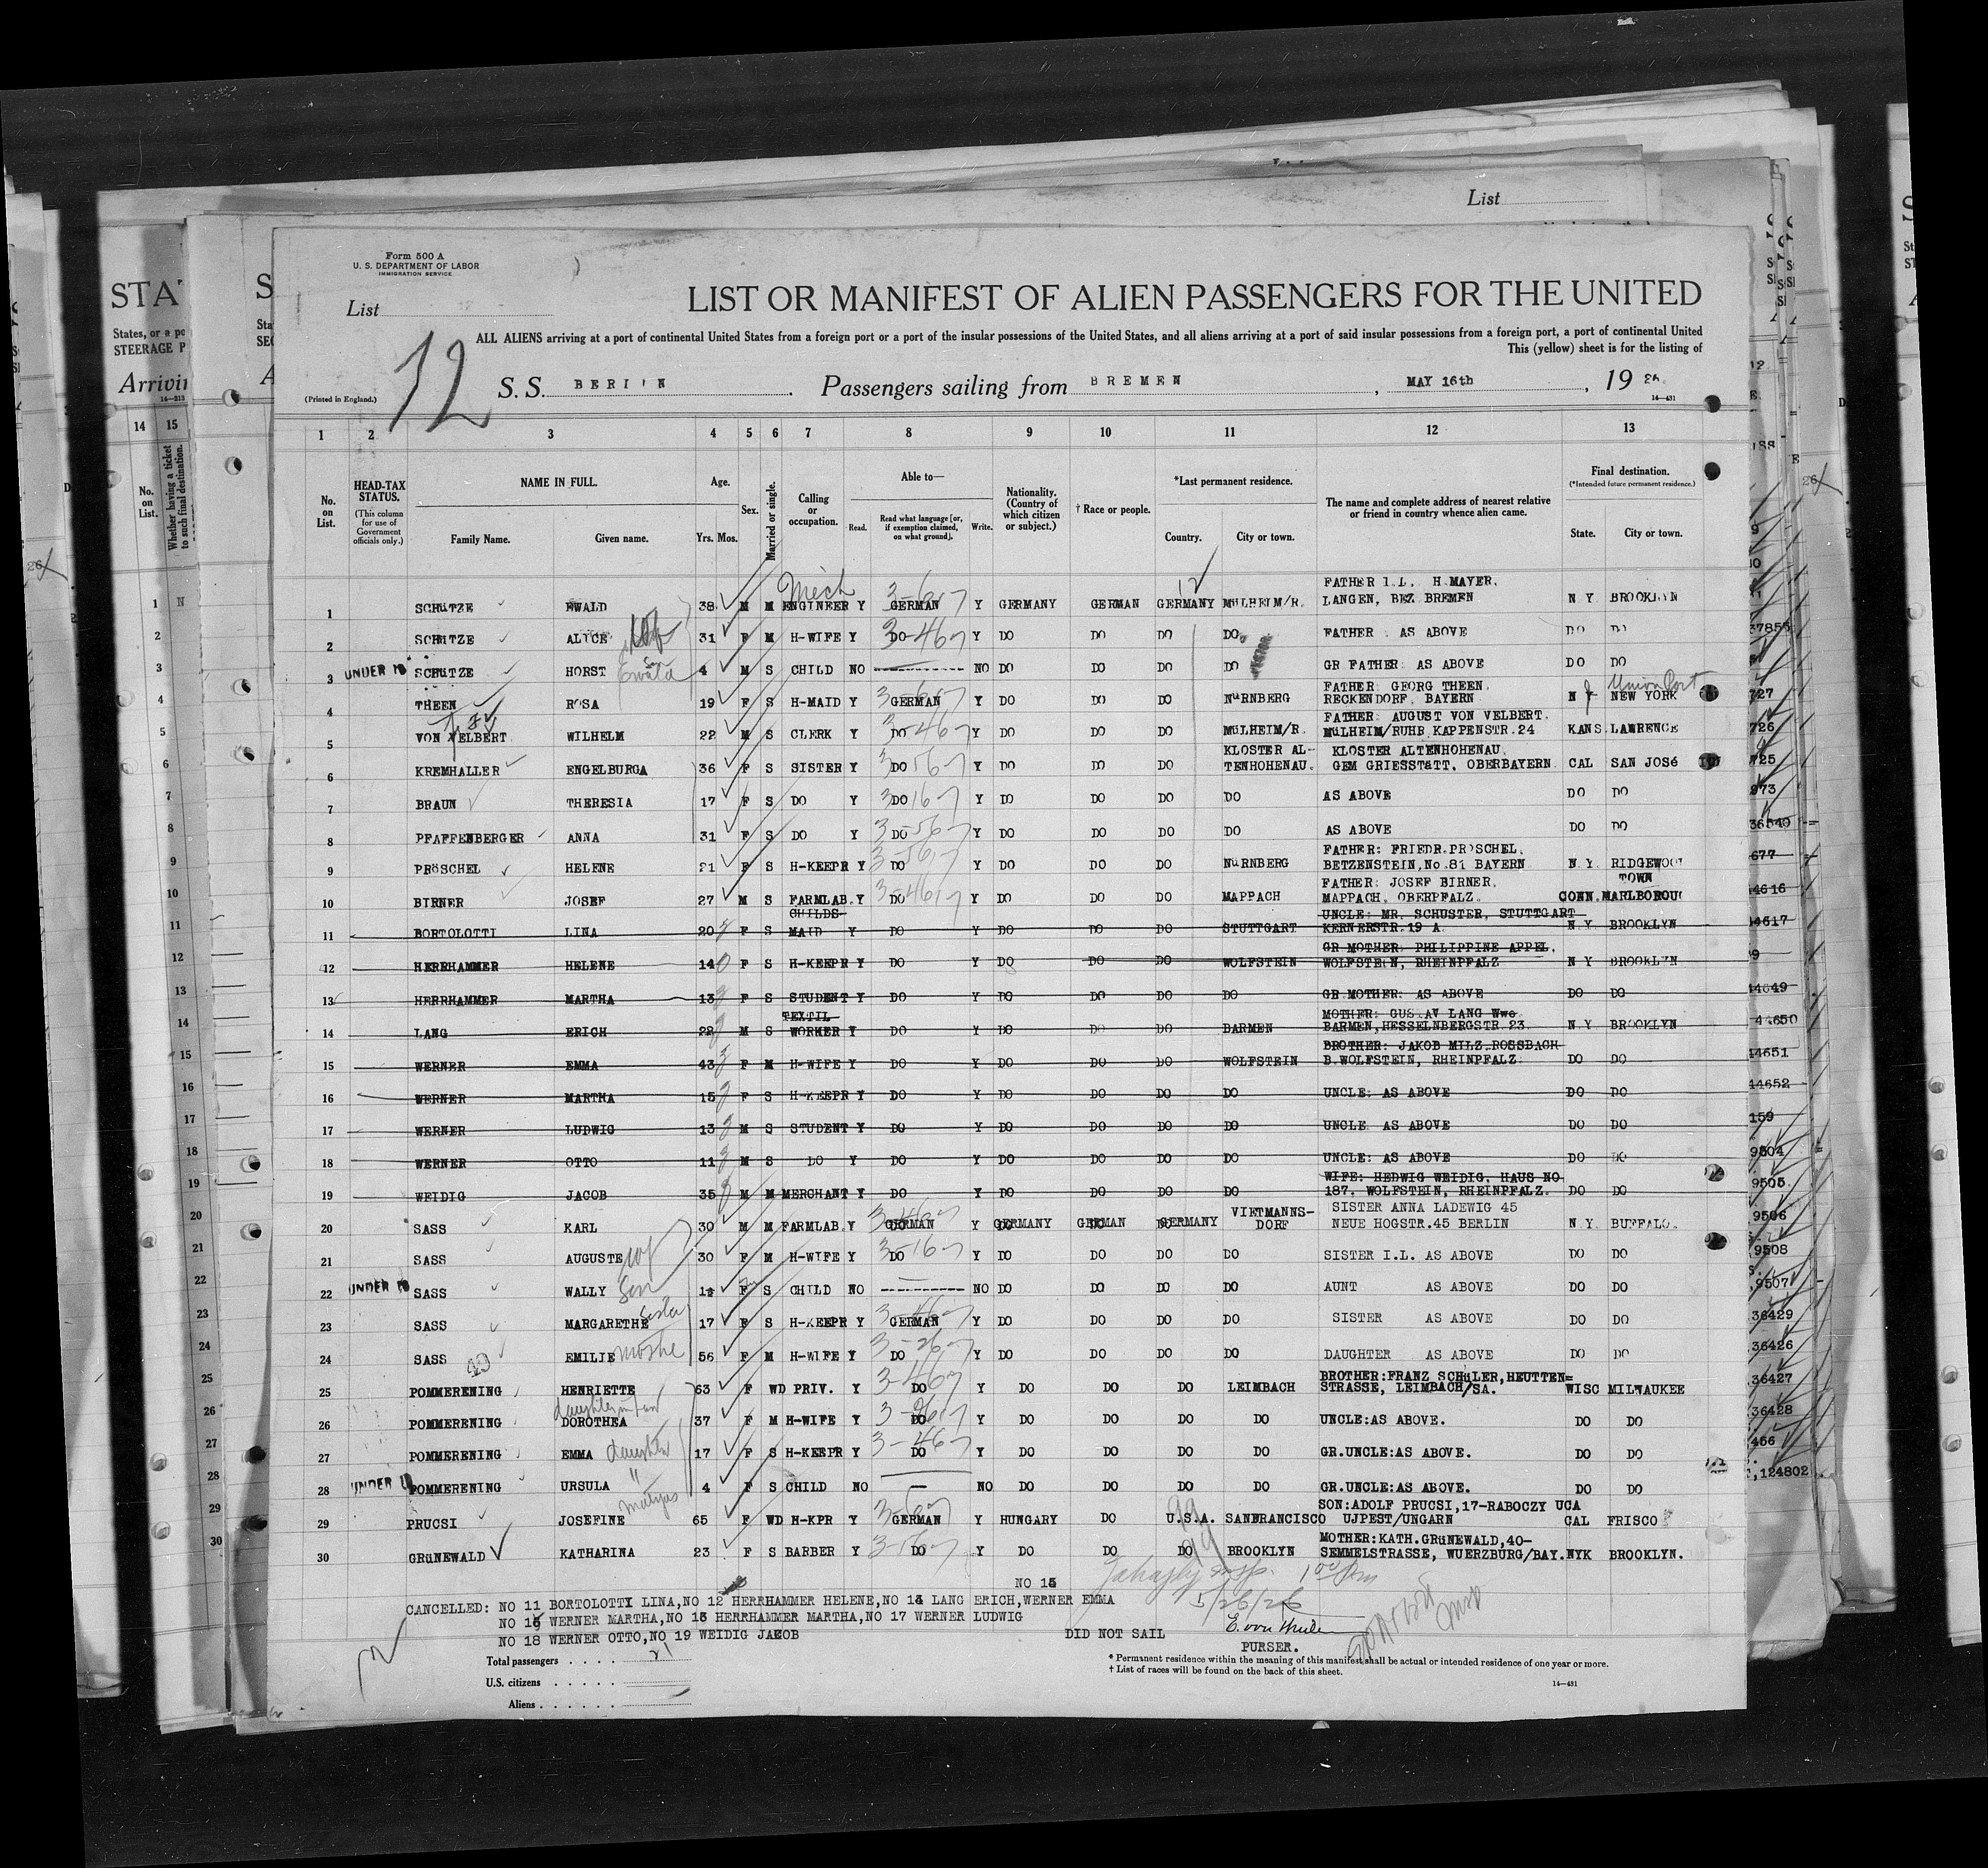 List
Form 500 A
U. S. DEPARTMENT OF LABOR
IMMIGRATION SERVICE
List
LIST OR MANIFEST OF ALIEN PASSENGERS FOR THE UNITED
ALL ALIENS arriving at a port of continental United States from a foreign port or a port of the insular possessions of the United States, and all aliens arriving at a port of said insular possessions from a foreign port, a port of continental United
This (yellow) sheet is for the listing of
12
(Printed in England.)
S. S. BERLIN. Passengers sailing from BREMEN, MAY 16th, 19 26
14—431
1 2 3 4 5 6 7 8 9 10 11 12 13
No. on List.
HEAD-TAX STATUS.
(This column for use of Government officials only.)
NAME IN FULL.
Family Name. Given name.
Age.
Yrs. Mos.
Sex.
Married or single.
Calling or occupation.
Able to—
Read. Read what language [or, if exemption claimed, on what ground]. Write.
Nationality. (Country of which citizen or subject.)
† Race or people.
*Last permanent residence.
Country. City or town.
The name and complete address of nearest relative or friend in country whence alien came.
Final destination.
(*Intended future permanent residence.)
State. City or town.
Mech
FATHER I.L. H MAYER.
1 SCHüTZE EWALD 38 M M ENGINEER Y GERMAN Y GERMANY GERMAN GERMANY MüLHEIM/R. LANGEN, BEZ BREMEN N Y BROOKLYN
2 SCHüTZE ALICE 31 F M H-WIFE Y DO Y DO DO DO DO FATHER AS ABOVE DO DO
3 UNDER 16 SCHüTZE HORST 4 M S CHILD NO -------- NO DO DO DO DO GR FATHER AS ABOVE DO DO
FATHER GEORG THEEN.
4 THEEN ROSA 19 F S H-MAID Y GERMAN Y DO DO DO NüRNBERG RECKENDORF, BAYERN N Y NEW YORK
FATHER AUGUST VON VELBERT.
5 VON VELBERT WILHELM 22 M S CLERK Y DO Y DO DO DO MüLHEIM/R. MüLHEIM/RUHR KAPPENSTR.24 KANS LAWRENCE
KLOSTER AL- KLOSTER ALTENHOHENAU
6 KREMHALLER ENGELBURGA 36 F S SISTER Y DO Y DO DO DO TENHOHENAU. GEM GRIESSTäTT, OBERBAYERN CAL SAN JOSé
7 BRAUN THERESIA 17 F S DO Y DO Y DO DO DO DO AS ABOVE DO DO
8 PFAFFENBERGER ANNA 31 F S DO Y DO Y DO DO DO DO AS ABOVE DO DO
FATHER: FRIEDR.PRöSCHEL.
9 PRöSCHEL HELENE 21 F S H-KEEPR Y DO Y DO DO DO NüRNBERG BETZENSTEIN,No.81 BAYERN N Y RIDGEWOO
FATHER: JOSEF BIRNER. TOWN
10 BIRNER JOSEF 27 M S FARMLAB.Y DO Y DO DO DO MAPPACH MAPPACH, OBERPFALZ. CONN.MARLBOROU
CHILDS- UNCLE: MR. SCHUSTER, STUTTGART
11 BORTOLOTTI LINA 20 F S MAID Y DO Y DO DO DO STUTTGART KERNERSTR.19 A N Y BROOKLYN
GR MOTHER PHILIPPINE APPEL.
12 HERRHAMMER HELENE 14 F S H-KEEPR Y DO Y DO DO DO WOLFSTEIN WOLFSTEIN, RHEINPFALZ N Y BROOKLYN
13 HERRHAMMER MARTHA 13 F S STUDENT Y DO Y DO DO DO DO GR MOTHER: AS ABOVE DO DO
TEXTIL MOTHER: GUSTAV LANG Wwe
14 LANG ERICH 22 M S WORKER Y DO Y DO DO DO BARMEN BARMEN,HESSELNBERGSTR 23. N Y BROOKLYN
BROTHER: JAKOB MILZ.ROSSBACH
15 WERNER EMMA 43 F M H-WIFE Y DO Y DO DO DO WOLFSTEIN B.WOLFSTEIN, RHEINPFALZ. DO DO
16 WERNER MARTHA 15 F S H-KEEPR Y DO Y DO DO DO DO UNCLE: AS ABOVE DO DO
17 WERNER LUDWIG 13 M S STUDENT Y DO Y DO DO DO DO UNCLE AS ABOVE DO DO
18 WERNER OTTO 11 M S DO Y DO Y DO DO DO DO UNCLE: AS ABOVE DO DO
WIFE: HEDWIG WEIDIG, HAUS NO
19 WEIDIG JACOB 35 M M MERCHANT Y DO Y DO DO DO DO 187, WOLFSTEIN, RHEINPFALZ. DO DO
VIETMANNS- SISTER ANNA LADEWIG 45
20 SASS KARL 30 M M FARMLAB.Y GERMAN Y GERMANY GERMAN GERMANY DORF NEUE HOGSTR.45 BERLIN N Y BUFFALO.
21 SASS AUGUSTE wf 30 F M H-WIFE Y DO Y DO DO DO DO SISTER I.L. AS ABOVE DO DO
22 UNDER 16 SASS WALLY Son F S CHILD NO -------- NO DO DO DO DO AUNT AS ABOVE DO DO
23 SASS MARGARETHE Sister 17 F S H-KEEPR Y GERMAN Y DO DO DO DO SISTER AS ABOVE DO DO
24 SASS EMILIE mother 56 F M H-WIFE Y DO Y DO DO DO DO DAUGHTER AS ABOVE DO DO
BROTHER:FRANZ SCHüLER,HEUTTEN=
25 POMMERENING HENRIETTE 63 F WD PRIV. Y DO Y DO DO DO LEIMBACH STRASSE, LEIMBACH/SA. WISC MILWAUKEE
daughter in law
26 POMMERENING DOROTHEA 37 F M H-WIFE Y DO Y DO DO DO DO UNCLE:AS ABOVE. DO DO
27 POMMERENING EMMA daughter 17 F S H-KEEPR Y DO Y DO DO DO DO GR.UNCLE:AS ABOVE. DO DO
28 UNDER POMMERENING URSULA " 4 F S CHILD NO — NO DO DO DO DO GR.UNCLE:AS ABOVE. DO DO
SON:ADOLF PRUCSI,17-RABOCZY UCA
29 PRUCSI JOSEFINE 65 F WD H-KPR Y GERMAN Y HUNGARY DO U.S.A. SANFRANCISCO UJPEST/UNGARN CAL FRISCO
MOTHER:KATH.GRüNEWALD,40-
30 GRüNEWALD KATHARINA 23 F S BARBER Y DO Y DO DO DO BROOKLYN SEMMELSTRASSE, WUERZBURG/BAY. NYK BROOKLYN.
NO 15
CANCELLED: NO 11 BORTOLOTTI LINA,NO 12 HERRHAMMER HELENE,NO 14 LANG ERICH,WERNER EMMA
NO 16 WERNER MARTHA,NO 13 HERRHAMMER MARTHA,NO 17 WERNER LUDWIG
NO 18 WERNER OTTO,NO 19 WEIDIG JACOB
DID NOT SAIL
5/26/26
PURSER.
Total passengers . . . . . 21
U.S. citizens . . . . . .
Aliens . . . . . .
* Permanent residence within the meaning of this manifest shall be actual or intended residence of one year or more.
† List of races will be found on the back of this sheet.
14—431